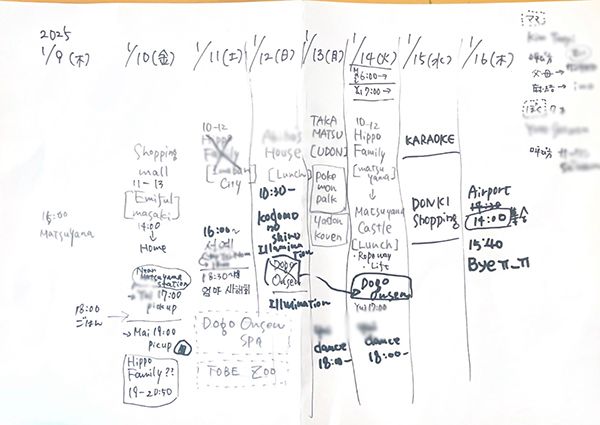 2025
1/9(木)
1/10(金)
1/11(土)
1/12(日)
1/13(月)
1/14(火)
1/15(水)
1/16(木)
16:00
Matsuyama
18:00
ごはん
Shopping
mall
11-13
[Emiful
masaki]
14:00
↓
Home
Near
Matsuyama
station
17:00
pickup
→ Mai 19:00
picup
Hippo
Family??
19-20:50
10-12
Hippo
Family
City
16:00~
서예
18:30
엄마
Dogo Onsen
SPA
TOBE ZOO
House
[Lunch]
10:30-
Kodomo
no
shiro
Illumina
tion
Dogo
Onsen
Illumination
TAKA
MATSU
[UDON]
poke
mon
park
dance
18:00-
6:00→
Yui 7:00→
10-12
Hippo
Family
[matsu
yama]
↓
Matsuyama
Castle
[Lunch]
・Ropeway
・Lift
Dogo
Onsen
Yui 17:00
dance
18:00-
KARAOKE
DONKI
Shopping
Airport
14:30
14:00
15:40
Bye π_π